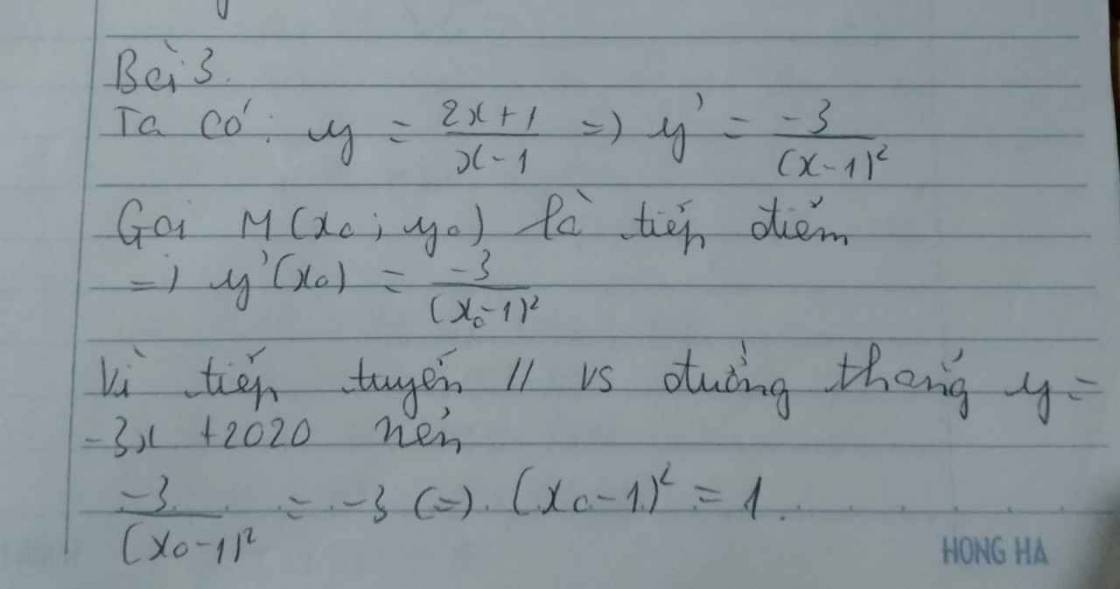 Bài 3.
Ta có: y = \frac{2x+1}{x-1} => y' = \frac{-3}{(x-1)²}
Gọi M(x₀; y₀) là tiếp điểm
=> y'(x₀) = \frac{-3}{(x₀-1)²}
Vì tiếp tuyến // vs đường thẳng y =
-3x + 2020 nên
\frac{-3}{(x₀-1)²} = -3 (=). (x₀-1)² = 1.
HONG HA